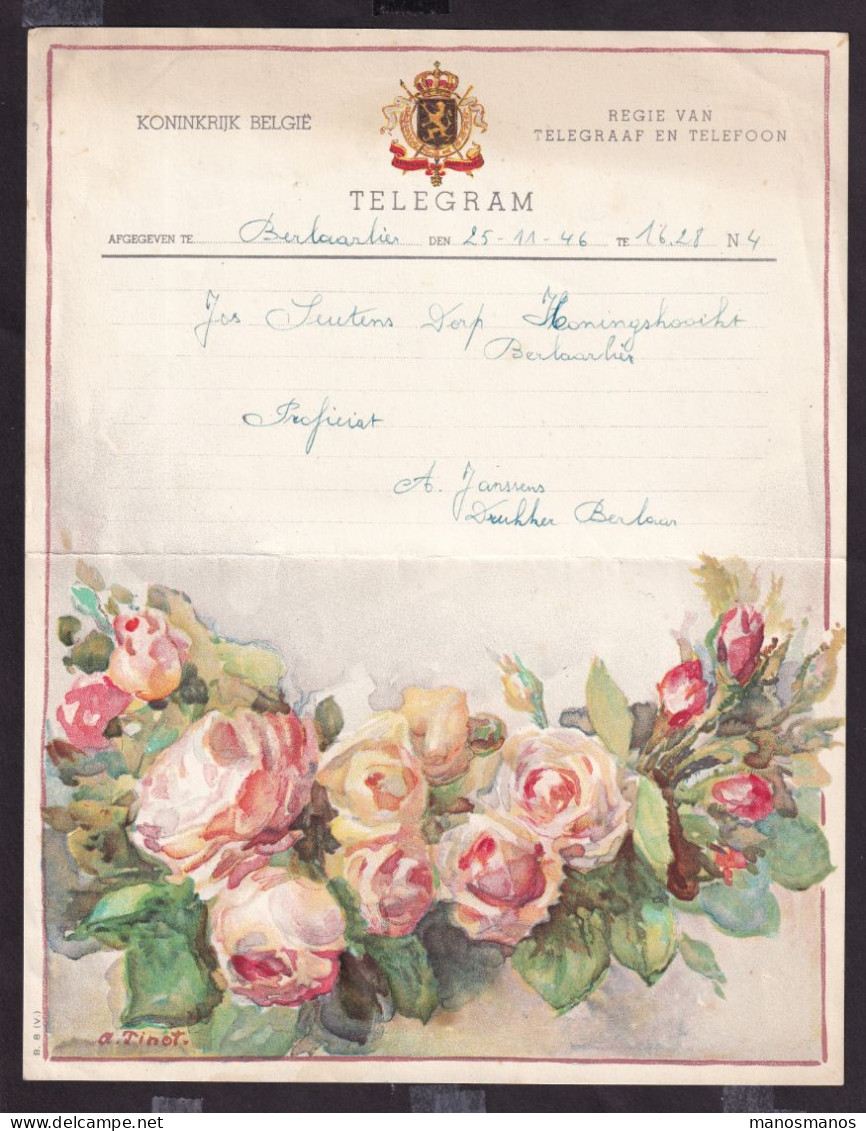 KONINKRIJK BELGIË
REGIE VAN
TELEGRAAF EN TELEFOON
TELEGRAM
AFGEGEVEN TE Berlaarlier DEN 25-11-46 TE 16.28 N 4
Jos Dorp Koningshooikt
Berlaarlier
Proficiat
A. Janssens
Drukker Berlaar
B. 8 (V.)
A. Pinot.
manosmanos